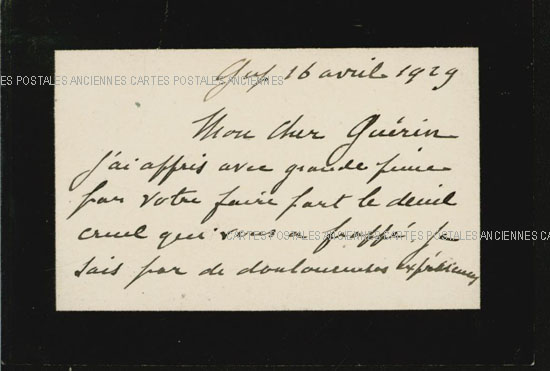 Gex 16 avril 1929
ES POSTALES ANCIENNES CARTES POSTALES ANCIENNES CARTES POSTALES ANCIENNES
Mon cher Guérin
j'ai appris avec grande peine
par votre faire part le deuil
cruel qui vous a frappé, je
CARTES POSTALES ANCIENNES CARTES POSTALES ANCIENNES CARTES
sais par de douloureuses expériences